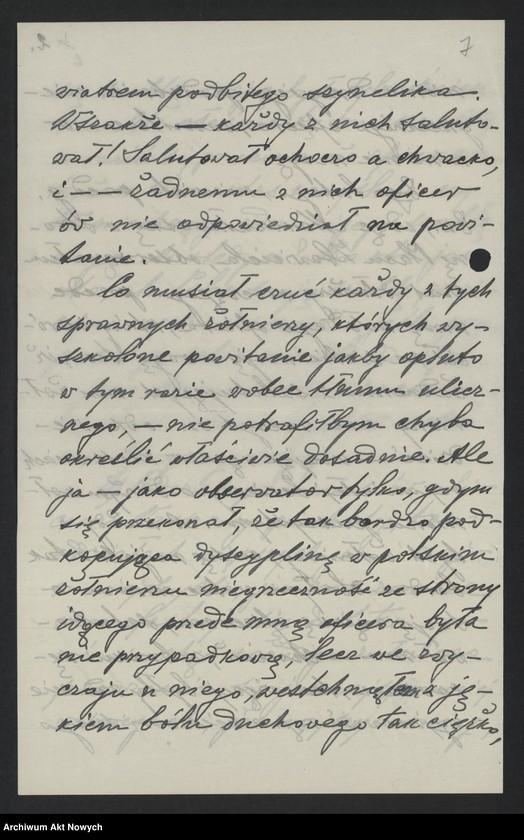 7
wiatrem podbitego szynelika.
Wszakże — każdy z nich saluto-
wał! Salutował ochoczo a chwacko,
i — — żadnemu z nich oficer
ów nie odpowiedział na powi-
tanie.
Co musiał czuć każdy z tych
sprawnych żołnierzy, których wy-
szkolone powitanie jakby opluto
w tym razie wobec tłumu ulicz-
nego, — nie potrafiłbym chyba
określić właściwie dosadnie. Ale
ja — jako obserwator tylko, gdym
się przekonał, że tak bardzo pod-
kopująca dyscyplinę w polskim
żołnierzu niegrzeczność ze strony
idącego przede mną oficera była
nie przypadkową, lecz we zwy-
czaju u niego, westchnąłem z ję-
kiem bólu duchowego tak ciężko,
Archiwum Akt Nowych